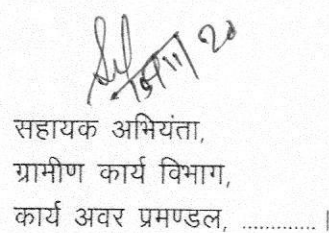 सहायक अभियंता,
ग्रामीण कार्य विभाग,
कार्य अवर प्रमण्डल, ............ ।